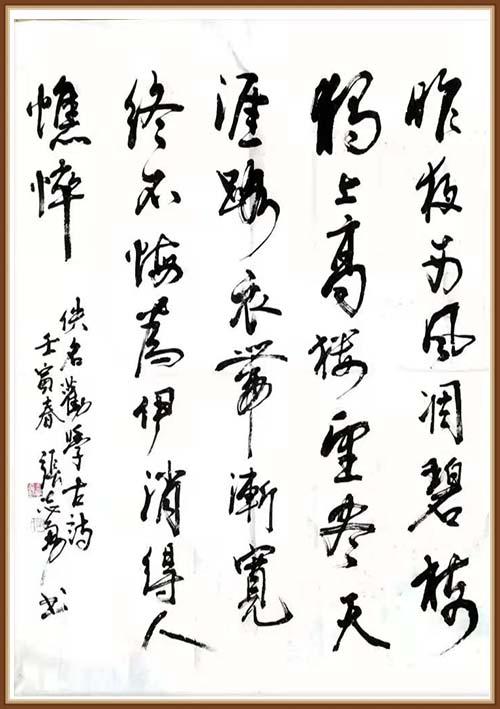 昨夜西风凋碧樹
獨上高樓望尽天
涯路衣帶漸寬
終不悔為伊消得人
憔悴
佚名勸學古詩
壬寅春 張志勇书